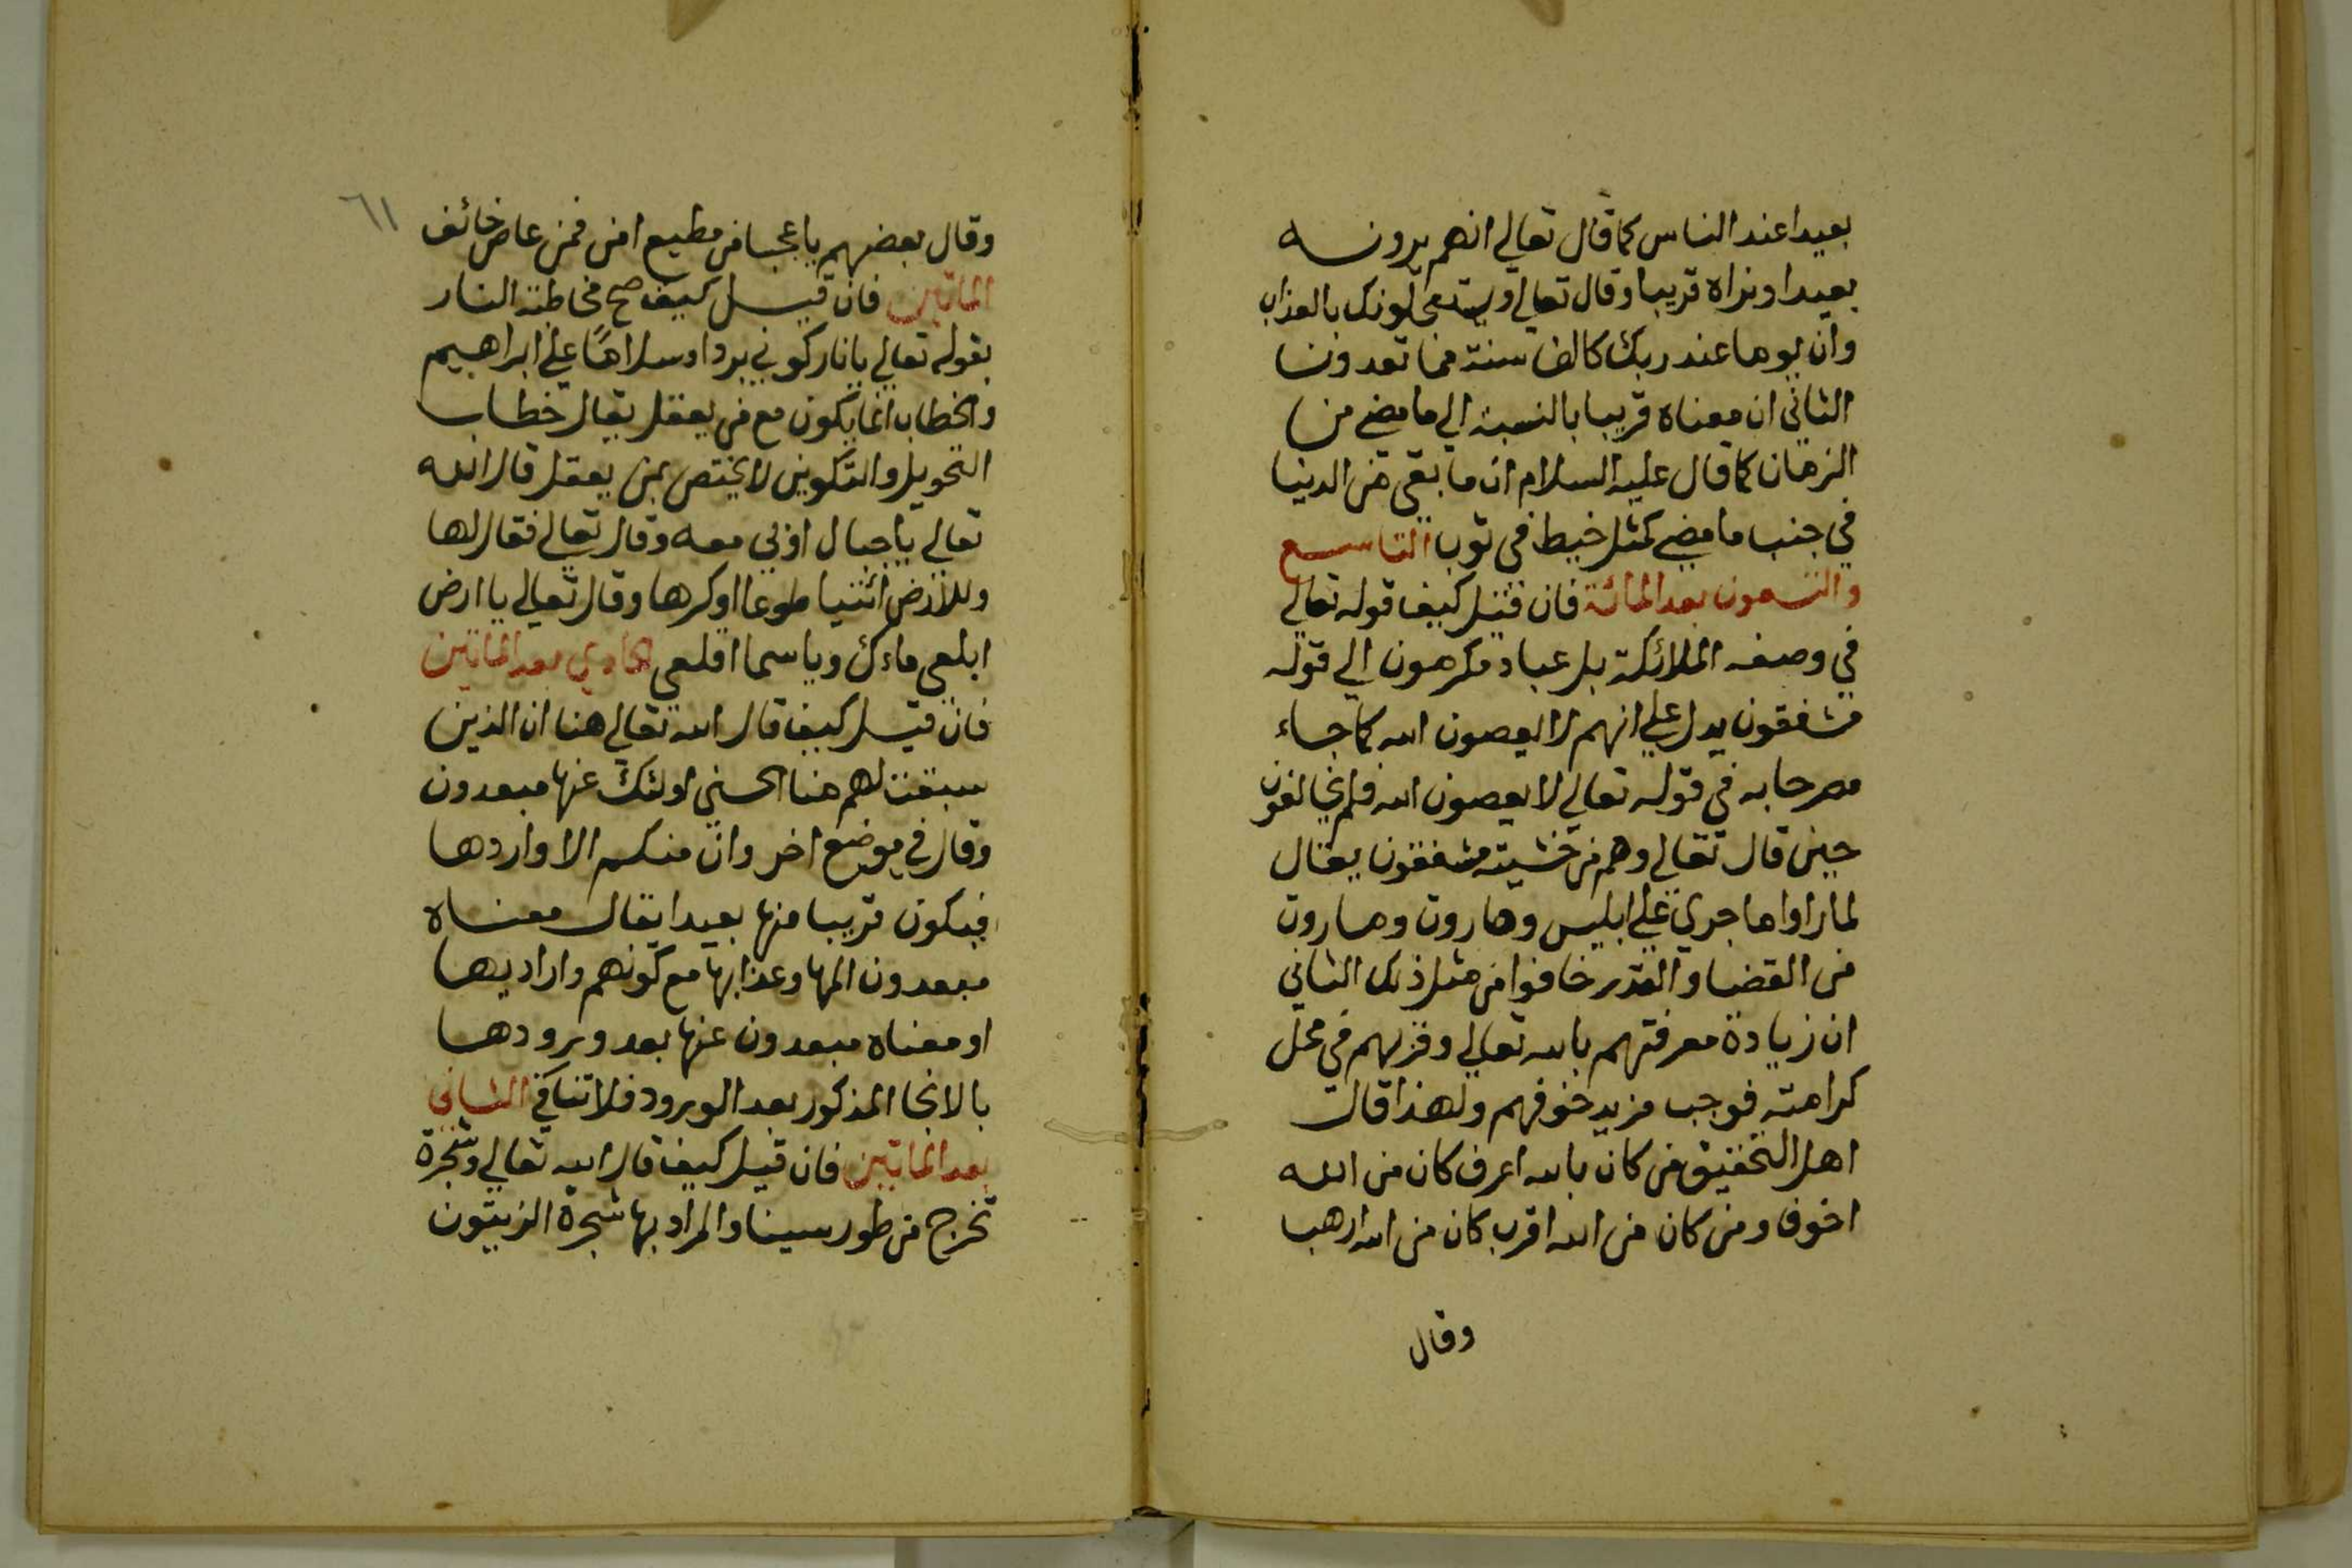 بعيدا عند الناس كما قال تعالي انهم يرونه
بعيدا ونراه قريبا وقال تعالي ويستعجلونك بالعذاب
وان يوما عند ربك كالف سنة مما تعدونا
الثاني ان معناه قريبا بالنسبة الي ما مضي من
الزمان كما قال عليه السلام ان ما بقي من الدنيا
في جنب ما مضي كمثل خيط في ثوب التاسع
والتسعون بعد المائة فان قيل كيف قوله تعالي
في وصفه الملائكة بل عباد مكرمون الي قوله
مشفقون يدل علي انهم لا يعصون الله كما جاء
مصرحا به في قوله تعالي لا يعصون الله فلم يخافون
حين قال تعالي وهم من خشيته مشفقون يقال
لما راوا ما جري علي ابليس وهاروت وماروت
من القضا والقدر خافوا من مثل ذلك الثاني
ان زيادة معرفتهم بالله تعالي وقربهم في محل
كرامته فوجب مزيد خوفهم ولهذا قالت
اهل التحقيق من كان بالله اعرف كان من الله
اخوف ومن كان من الله اقرب كان من الله ارهب
وقال
٦١
وقال بعضهم يا عجبا من مطيع امن فمن عاص خائف
الماتين فان قيل كيف صح مخاطبة النار
بقوله تعالي يا نار كوني بردا وسلاما علي ابراهيم
والخطاب انما يكون مع من يعقل يقال خطاب
التحويل والتكوين لا يختص بمن يعقل قال الله
تعالي يا جبال اوبي معه وقال تعالي فقال لها
وللارض ائتيا طوعا او كرها وقال تعالي يا ارض
ابلعي ماءك ويا سما اقلعي الحادي بعد الماتين
فان قيل كيف قال الله تعالي هنا ان الذين
سبقت لهم منا الحسني اولئك عنها مبعدون
وقال في موضع اخر وان منكم الا واردها
فيكون قريبا منها بعيدا يقال معناه
مبعدون المها وعذابها مع كونهم وارديها
او معناه مبعدون عنها بعد ورودها
بالانجا المذكور بعد الورود فلا تنافي الثاني
بعد الماتين فان قيل كيف قال الله تعالي وشجرة
تخرج من طور سينا والمراد بها شجرة الزيتون